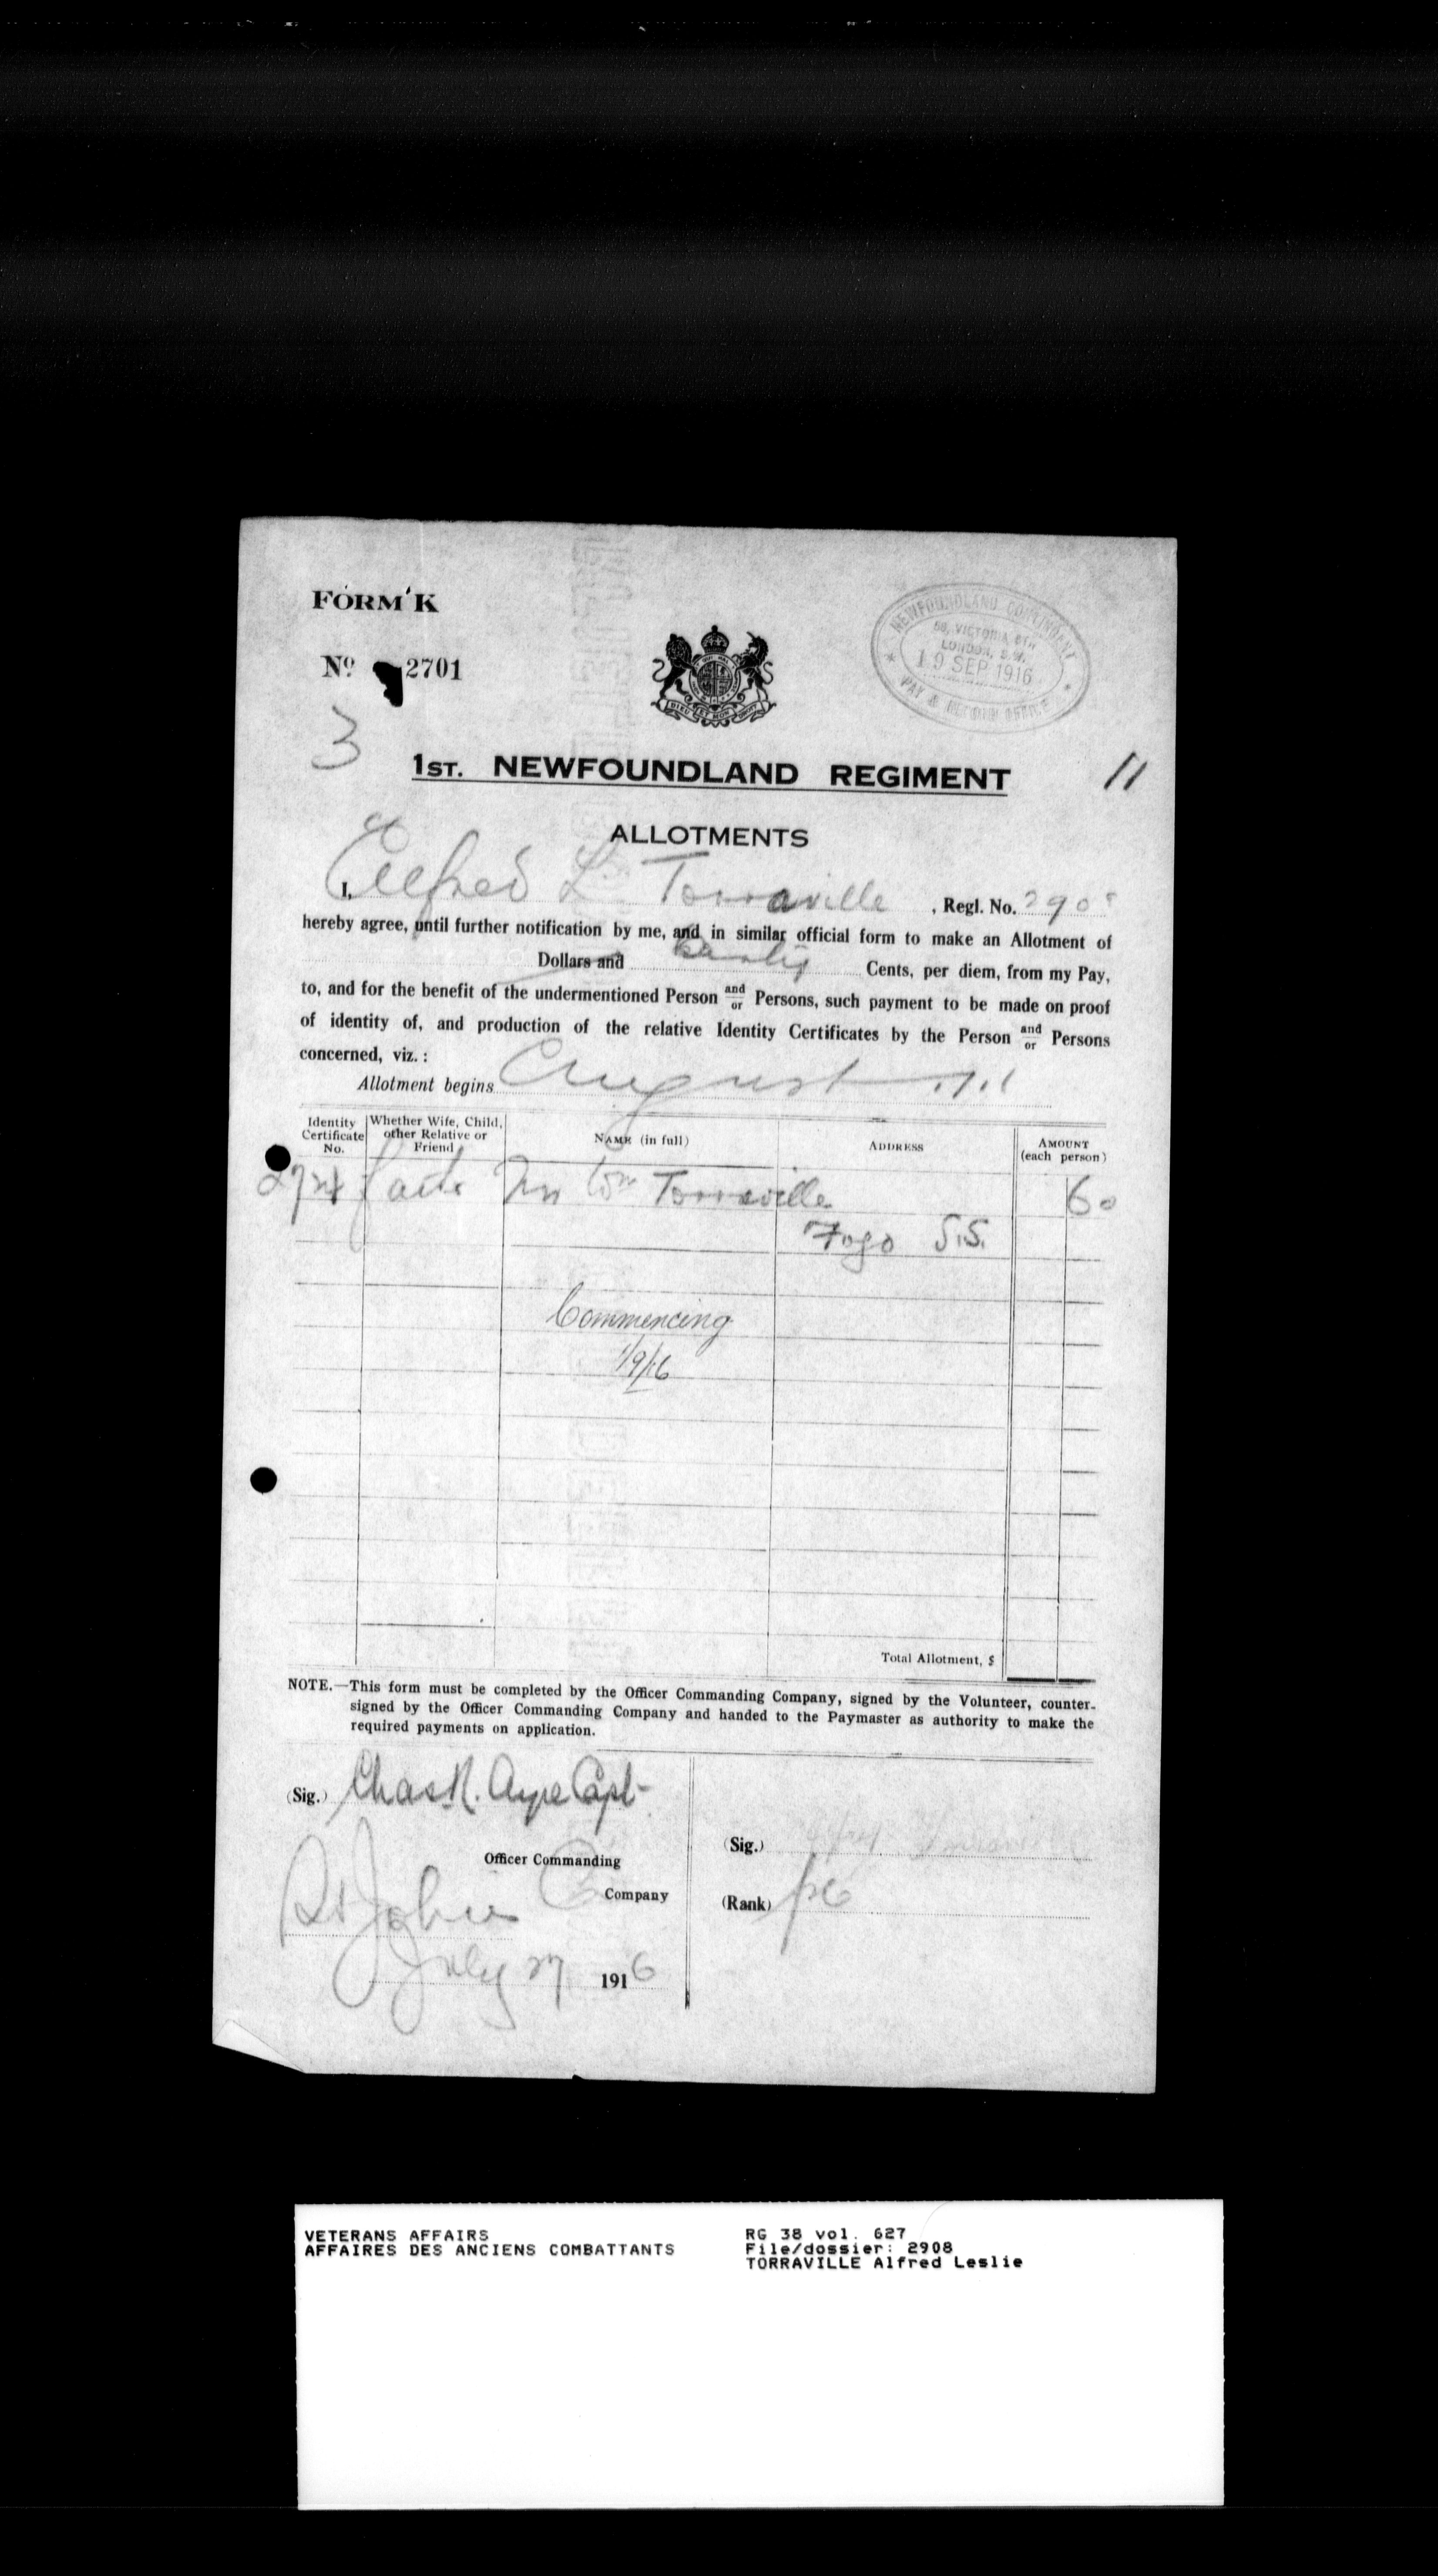 FORM K
Nº 2701
NEWFOUNDLAND CONTINGENT
58, VICTORIA ST.
LONDON, S.W.
19 SEP 1916
PAY & RECORD OFFICE
3
1ST. NEWFOUNDLAND REGIMENT
11
ALLOTMENTS
I, Alfred L. Torraville, Regl. No. 290
hereby agree, until further notification by me, and in similar official form to make an Allotment of
Dollars and Cents, per diem, from my Pay,
to, and for the benefit of the undermentioned Person and/or Persons, such payment to be made on proof
of identity of, and production of the relative Identity Certificates by the Person and/or Persons
concerned, viz. :
Allotment begins August
Identity Certificate No.
Whether Wife, Child, other Relative or Friend
NAME (in full)
ADDRESS
AMOUNT (each person)
Wm Torraville 60
Fogo
Commencing
1/9/16
Total Allotment, $
NOTE.—This form must be completed by the Officer Commanding Company, signed by the Volunteer, counter-
signed by the Officer Commanding Company and handed to the Paymaster as authority to make the
required payments on application.
(Sig.) Chas R. Ayre Capt
(Sig.) Torraville
Officer Commanding
Company
(Rank) pte
St Johns
July 27 1916
VETERANS AFFAIRS
AFFAIRES DES ANCIENS COMBATTANTS
RG 38 vol. 627
File/dossier: 2908
TORRAVILLE Alfred Leslie